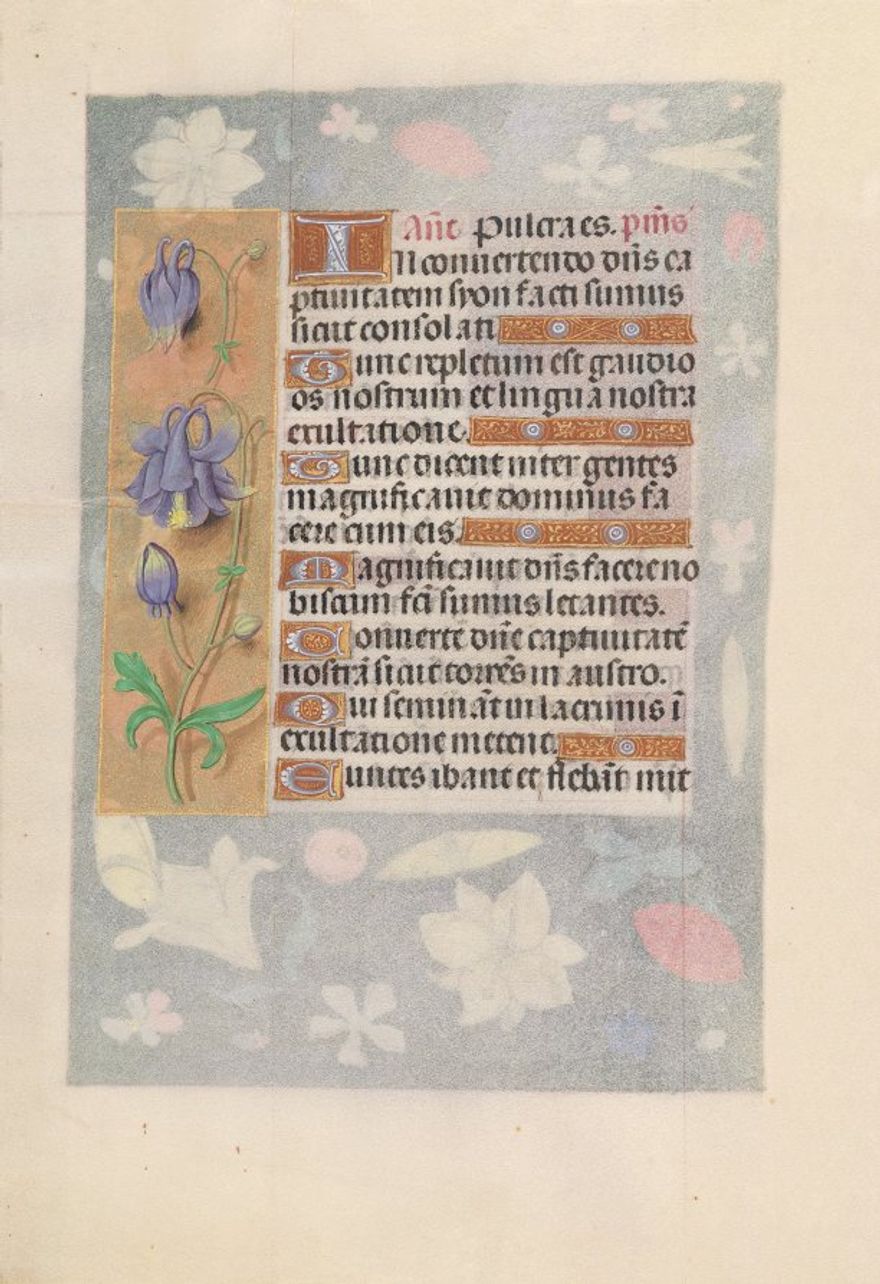 Añt Pulcra es. pm̃s
IN conuertendo dñs ca
ptiuitatem syon facti sumus
sicut consolati
Tunc repletum est gaudio
os nostrum et lingua nostra
exultatione.
Tunc dicent inter gentes
magnificauit dominus fa
cere cum eis.
Magnificauit dñs facere no
biscum fcĩ sumus letantes.
Conuerte dñe captiuitatẽ
nostrã sicut torrẽs in austro.
Qui seminãt in lacrimis ĩ
exultatione metent.
Euntes ibant et flebãt mit